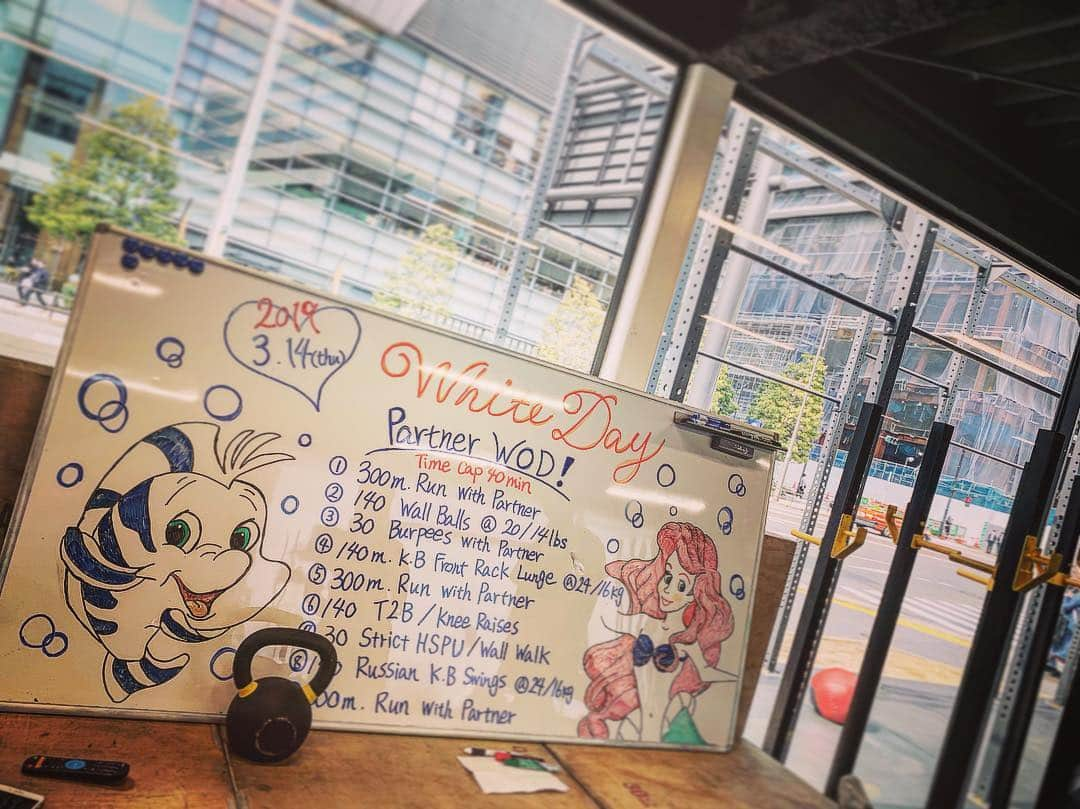 2019
3.14(thu)
White Day
Partner WOD!
Time Cap 40min
① 300m. Run with Partner
② 140 Wall Balls @ 20/14lbs
③ 30 Burpees with Partner
④ 140m. K.B Front Rack Lunge @24/16kg
⑤ 300m. Run with Partner
⑥ 140 T2B / Knee Raises
30 Strict HSPU / Wall Walk
⑧ Russian K.B Swings @24/16kg
00m. Run with Partner